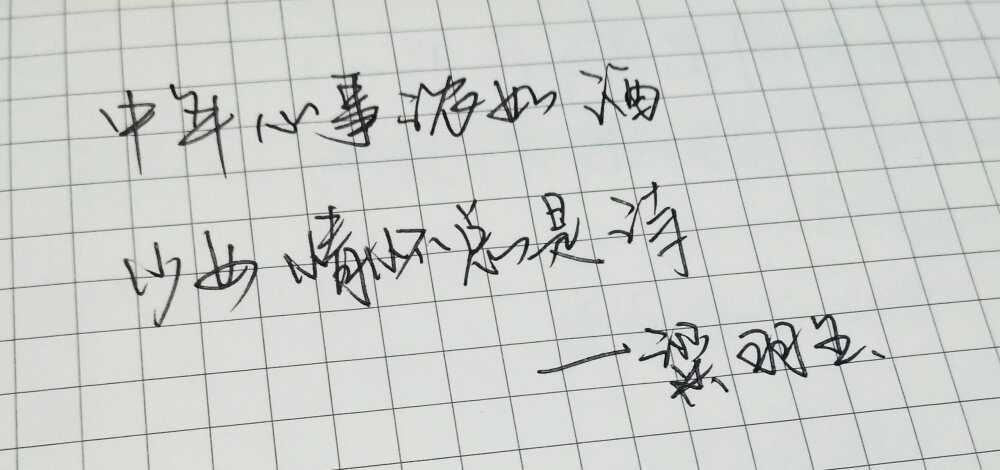 中年心事浓如酒
少女情怀总是诗
—梁羽生